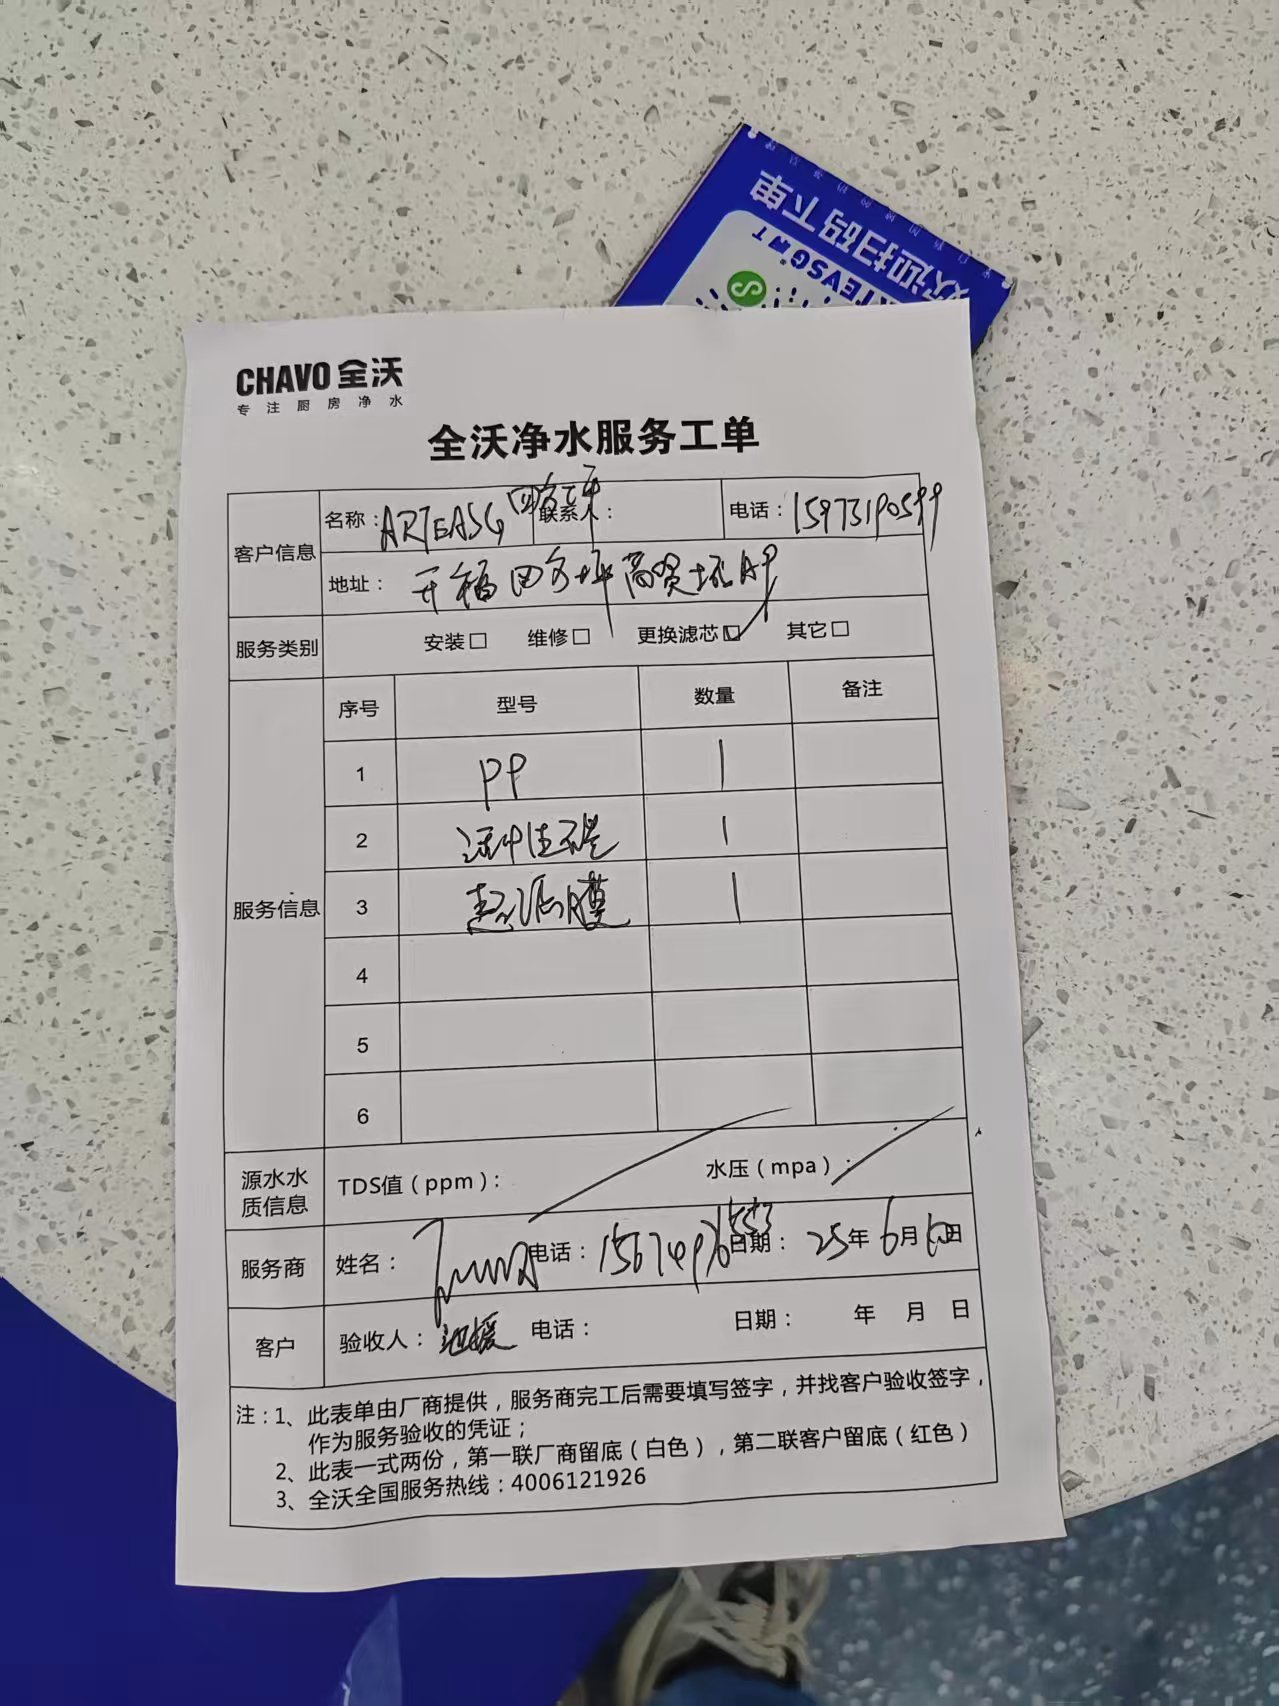 欢迎扫码下单
CHAVO 全沃
专注厨房净水
全沃净水服务工单
客户信息
名称：ARTEASG 四方坪
联系人：
电话：15973190599
地址：开福四方坪
服务类别
安装□ 维修□ 更换滤芯☑ 其它□
服务信息
序号 型号 数量 备注
1 PP 1
2 活性炭 1
3 超滤膜 1
4
5
6
源水水质信息
TDS值（ppm）： 水压（mpa）：
服务商
姓名： 电话：15674976553 日期：25年6月 日
客户
验收人： 电话： 日期： 年 月 日
注：1、此表单由厂商提供，服务商完工后需要填写签字，并找客户验收签字，
作为服务验收的凭证；
2、此表一式两份，第一联厂商留底（白色），第二联客户留底（红色）
3、全沃全国服务热线：4006121926